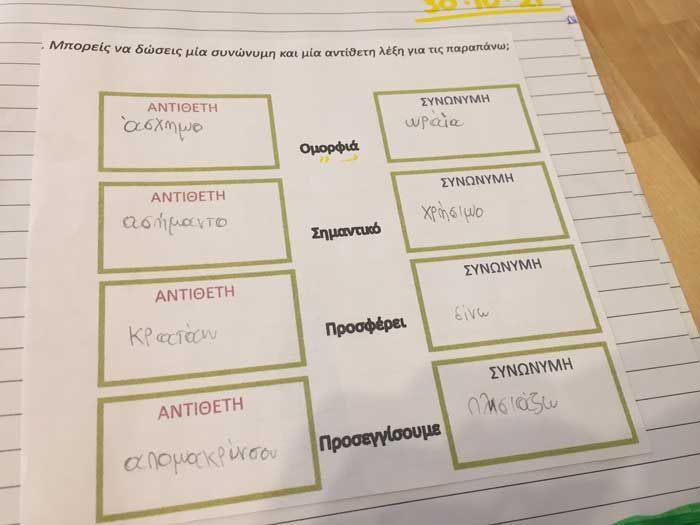 30-10-21
. Μπορείς να δώσεις μία συνώνυμη και μία αντίθετη λέξη για τις παραπάνω;
ΑΝΤΙΘΕΤΗ
άσχημο
Ομορφιά
ΣΥΝΩΝΥΜΗ
ωραία
ΑΝΤΙΘΕΤΗ
ασήμαντο
Σημαντικό
ΣΥΝΩΝΥΜΗ
χρήσιμο
ΑΝΤΙΘΕΤΗ
κρατάω
Προσφέρει
ΣΥΝΩΝΥΜΗ
δίνω
ΑΝΤΙΘΕΤΗ
απομακρύνσου
Προσεγγίσουμε
ΣΥΝΩΝΥΜΗ
πλησιάζω